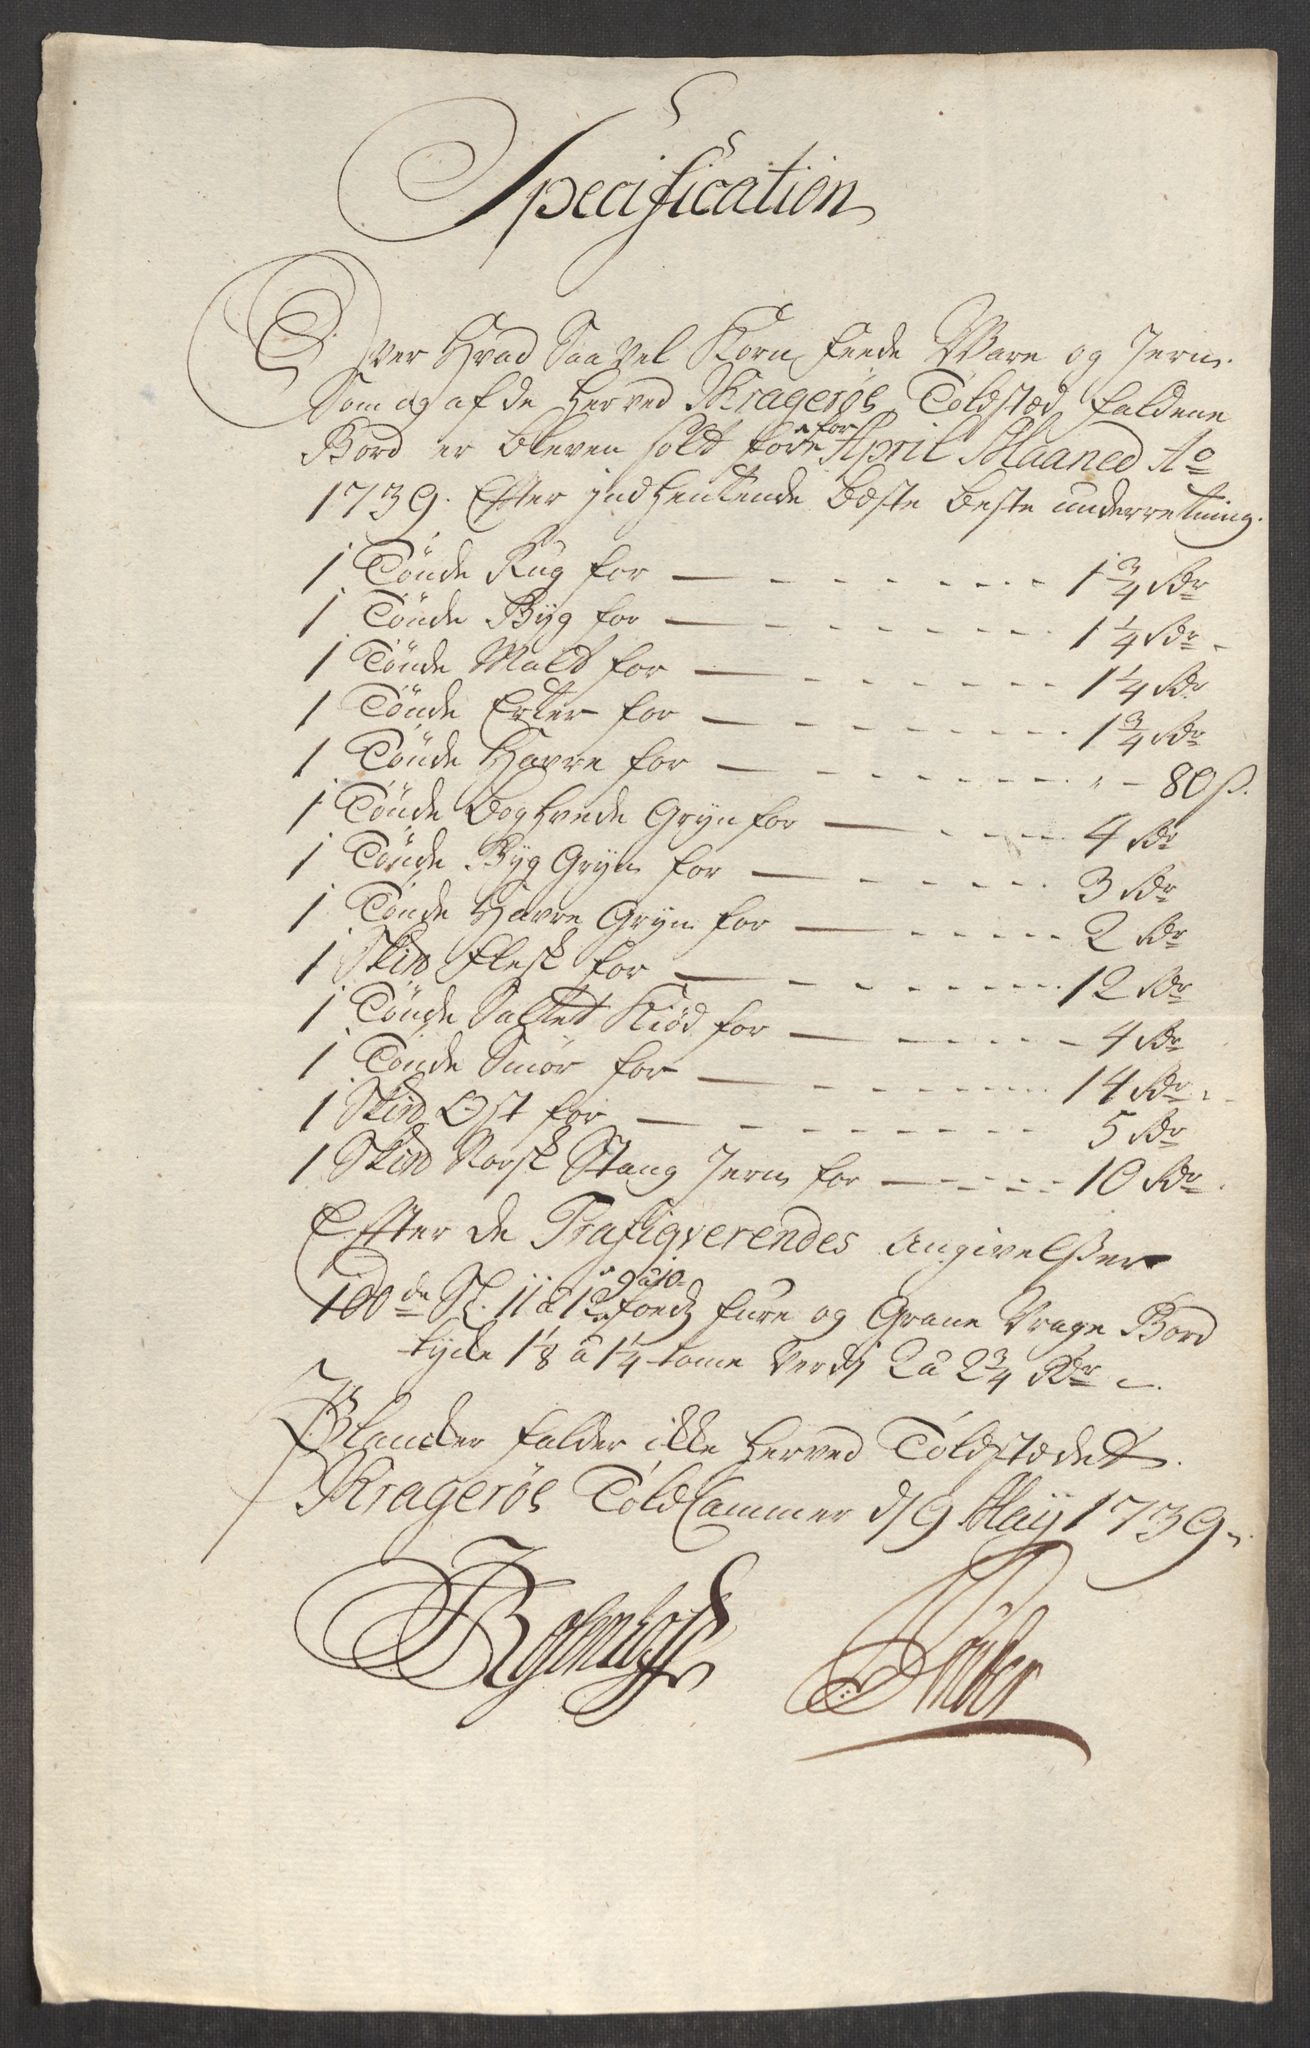 Specification
Over Hvad Saa vel Korn, feede Vare og Jern
Som og af de her ved Kragerøes Toldsted faldene
Bord er bleven solt for April Maaned Ao
1739. Efter indhentende bæste beste underretning.
1 Tönde Rüg for — 1 3/4 Rdr
1 Tönde Byg for — 1 1/4 Rdr
1 Tönde Malt for — 1 1/4 Rdr
1 Tönde Erter for — 1 3/4 Rdr
1 Tönde Havre for — " - 80 ß.
1 Tönde Boghvede Gryn for — 4 Rdr
1 Tönde Byg Gryn for — 3 Rdr
1 Tönde Havre Gryn for — 2 Rdr
1 Skin Flesk for — 12 Rdr
1 Tönde Saltet Kiød for — 4 Rdr
1 Tönde Smör for — 14 Rdr
1 Skin Ost for — 5 Rdr
1 Skin Norsk Stang Jern for — 10 Rdr
Efter de Trafiqverendes Angivelßer
100de St. 11 a 12 9 a 10 foedz fure og Grane Vrage Bord
tycke 1 1/8 a 1 1/4 tome Verdj 2 a 2 3/4 Rdr
Plancker falder ikke herved Toldstædet.
Kragerøes Told Cammer d/ 9 Maij 1739